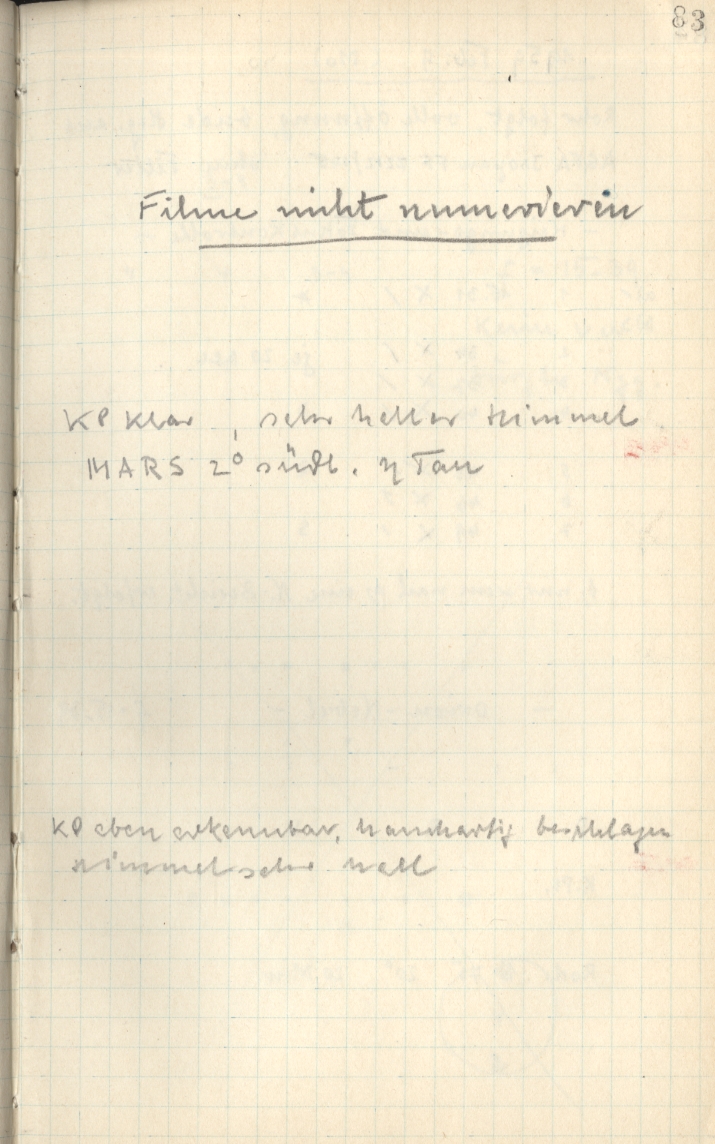 83
Filme nicht numerieren
KP klar, sehr heller Himmel
MARS 2° südl. η Tau
KP eben erkennbar, hauchartig beschlagen
Himmel sehr hell